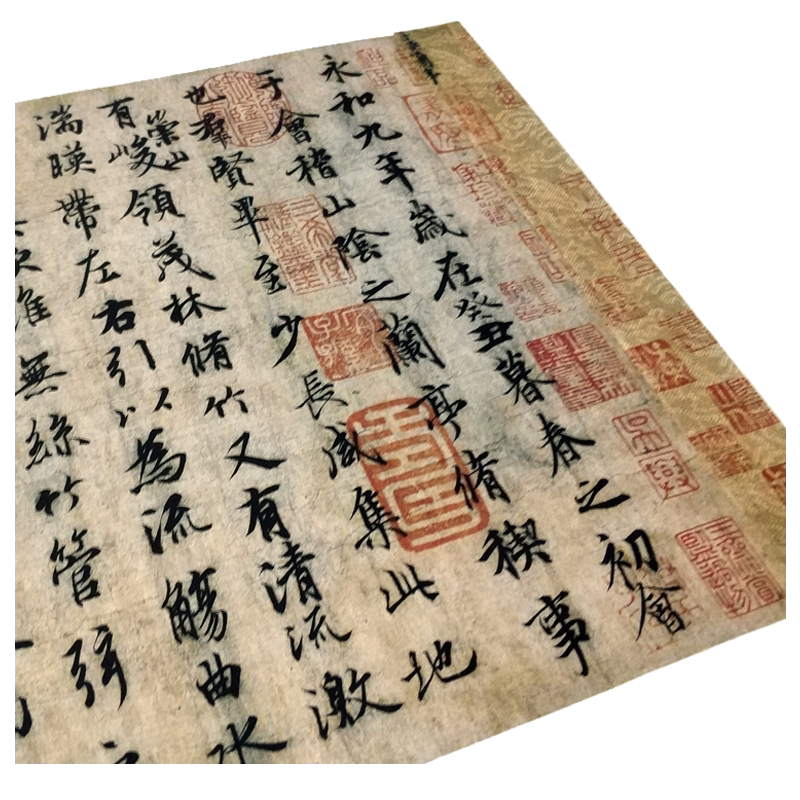 永和九年歲在癸丑暮春之初會
于會稽山陰之蘭亭脩稧事
也羣賢畢至少長咸集此地
有崇山峻領茂林脩竹又有清流激
湍暎帶左右引以為流觴曲水
無絲竹管弦